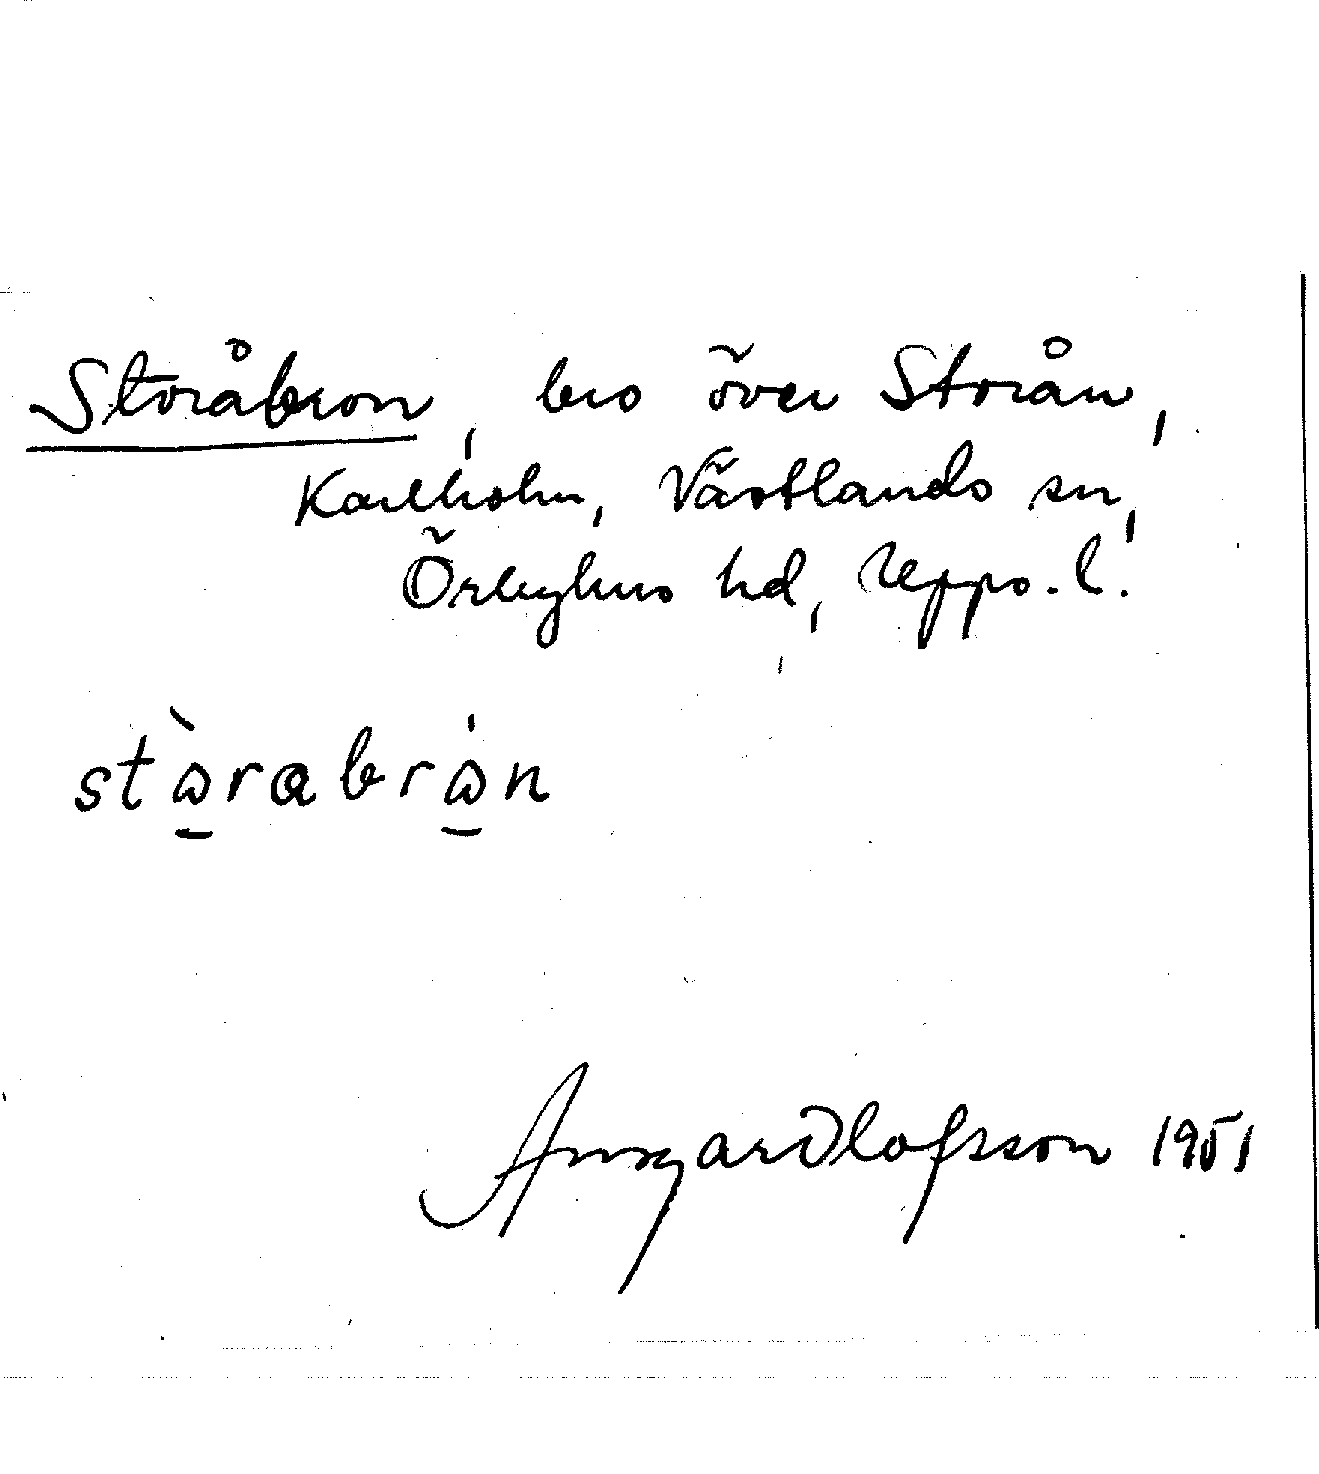 Storåbron, bro över Storån,
Karlholm, Västlands sn,
Örbyhus hd, Upps. l.
stὼ̱rabrώ̱n
Ansgar Olofsson 1951